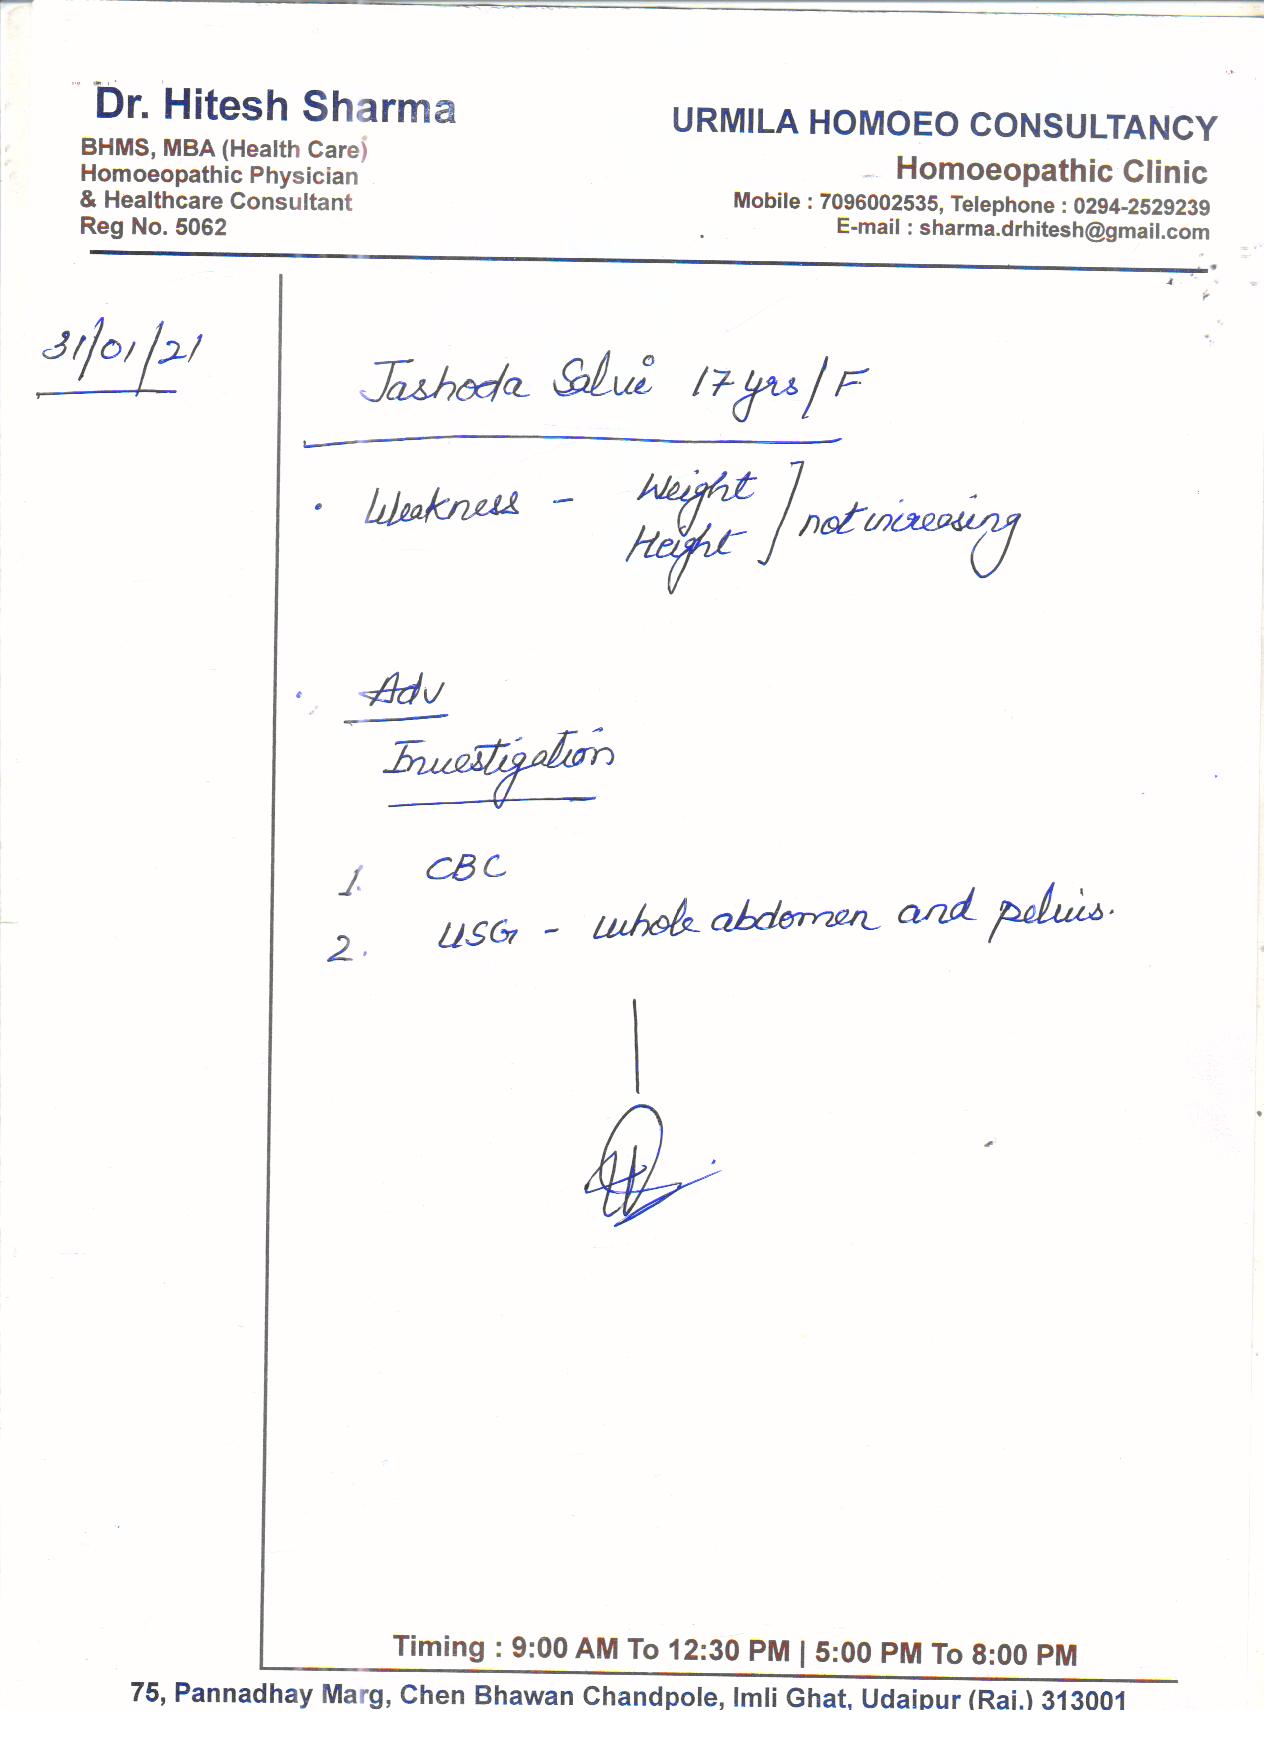 Dr. Hitesh Sharma
BHMS, MBA (Health Care)
Homoeopathic Physician
& Healthcare Consultant
Reg No. 5062
URMILA HOMOEO CONSULTANCY
Homoeopathic Clinic
Mobile : 7096002535, Telephone : 0294-2529239
E-mail : sharma.drhitesh@gmail.com
31/01/21
Jashoda Salvi 17 yrs / F
Weakness - Weight
Height ] not increasing
Adv
Investigation
1. CBC
2. USG - whole abdomen and pelvis.
Timing : 9:00 AM To 12:30 PM | 5:00 PM To 8:00 PM
75, Pannadhay Marg, Chen Bhawan Chandpole, Imli Ghat, Udaipur (Raj.) 313001